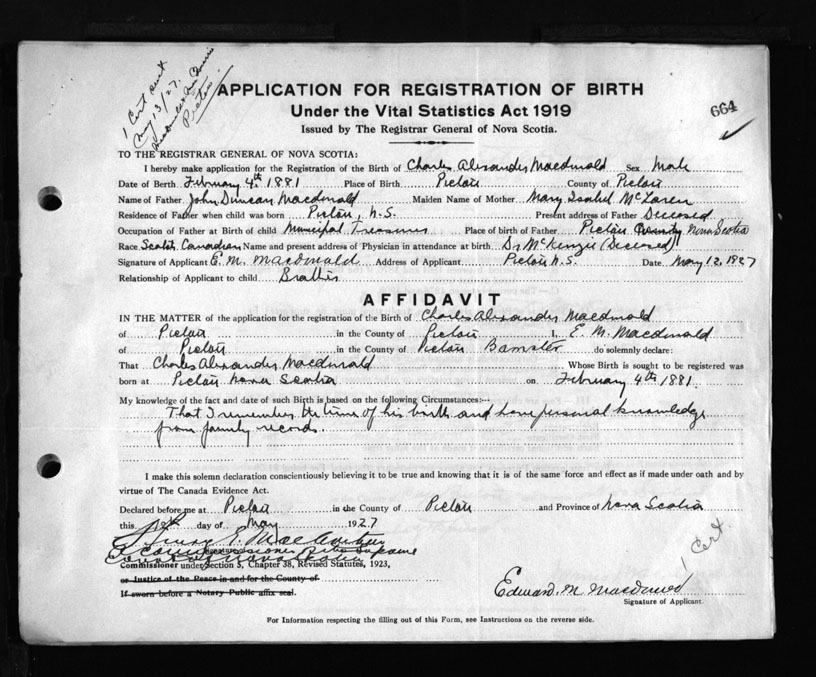 1 Cert sent
May 13/27.
APPLICATION FOR REGISTRATION OF BIRTH
Under the Vital Statistics Act 1919
Issued by The Registrar General of Nova Scotia.
664
TO THE REGISTRAR GENERAL OF NOVA SCOTIA:
I hereby make application for the Registration of the Birth of Charles Alexander Macdonald Sex Male
Date of Birth February 4th 1881 Place of Birth Pictou County of Pictou
Name of Father John Duncan Macdonald Maiden Name of Mother Mary Isabel McLaren
Residence of Father when child was born Pictou, N.S. Present address of Father Deceased
Occupation of Father at Birth of child Municipal Treasurer Place of birth of Father Pictou County Nova Scotia
Race Scotch Canadian Name and present address of Physician in attendance at birth Dr McKenzie (Deceased)
Signature of Applicant E. M. Macdonald Address of Applicant Pictou N.S. Date May 12, 1927
Relationship of Applicant to child Brother
AFFIDAVIT
IN THE MATTER of the application for the registration of the Birth of Charles Alexander Macdonald
of Pictou in the County of Pictou I, E. M. Macdonald
of Pictou in the County of Pictou Barrister do solemnly declare:
That Charles Alexander Macdonald Whose Birth is sought to be registered was
born at Pictou Nova Scotia on February 4th 1881.
My knowledge of the fact and date of such Birth is based on the following Circumstances:--
That I remember the time of his birth and have personal knowledge
from family records.
I make this solemn declaration conscientiously believing it to be true and knowing that it is of the same force and effect as if made under oath and by
virtue of The Canada Evidence Act.
Declared before me at Pictou in the County of Pictou and Province of Nova Scotia
this 12th day of May 1927
A Commissioner of the Supreme
Court of Nova Scotia
Commissioner under Section 5, Chapter 38, Revised Statutes, 1923,
or Justice of the Peace in and for the County of
If sworn before a Notary Public affix seal.
1 Cert.
Edward. M. Macdonald
Signature of Applicant.
For Information respecting the filling out of this Form, see Instructions on the reverse side.